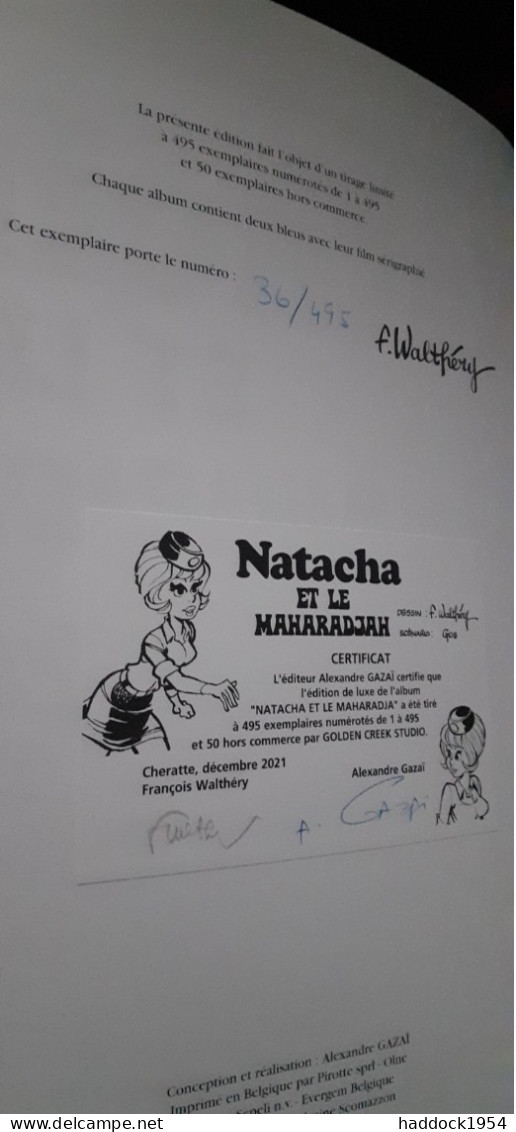 La présente édition fait l'objet d'un tirage limité
à 495 exemplaires numérotés de 1 à 495
et 50 exemplaires hors commerce
Chaque album contient deux bleus avec leur film sérigraphié
Cet exemplaire porte le numéro :
36/495
F. Walthéry
Natacha
ET LE
MAHARADJAH
DESSIN : F. Walthéry
SCÉNARIO : Gos
CERTIFICAT
L'éditeur Alexandre GAZAÏ certifie que
l'édition de luxe de l'album
"NATACHA ET LE MAHARADJA" a été tiré
à 495 exemplaires numérotés de 1 à 495
et 50 hors commerce par GOLDEN CREEK STUDIO.
Cheratte, décembre 2021
François Walthéry
Alexandre Gazaï
A. Gazaï
Conception et réalisation : Alexandre GAZAÏ
Imprimé en Belgique par Pirotte sprl - Olne
Sepeli n.v. - Evergem Belgique
Scomazzon
haddock1954